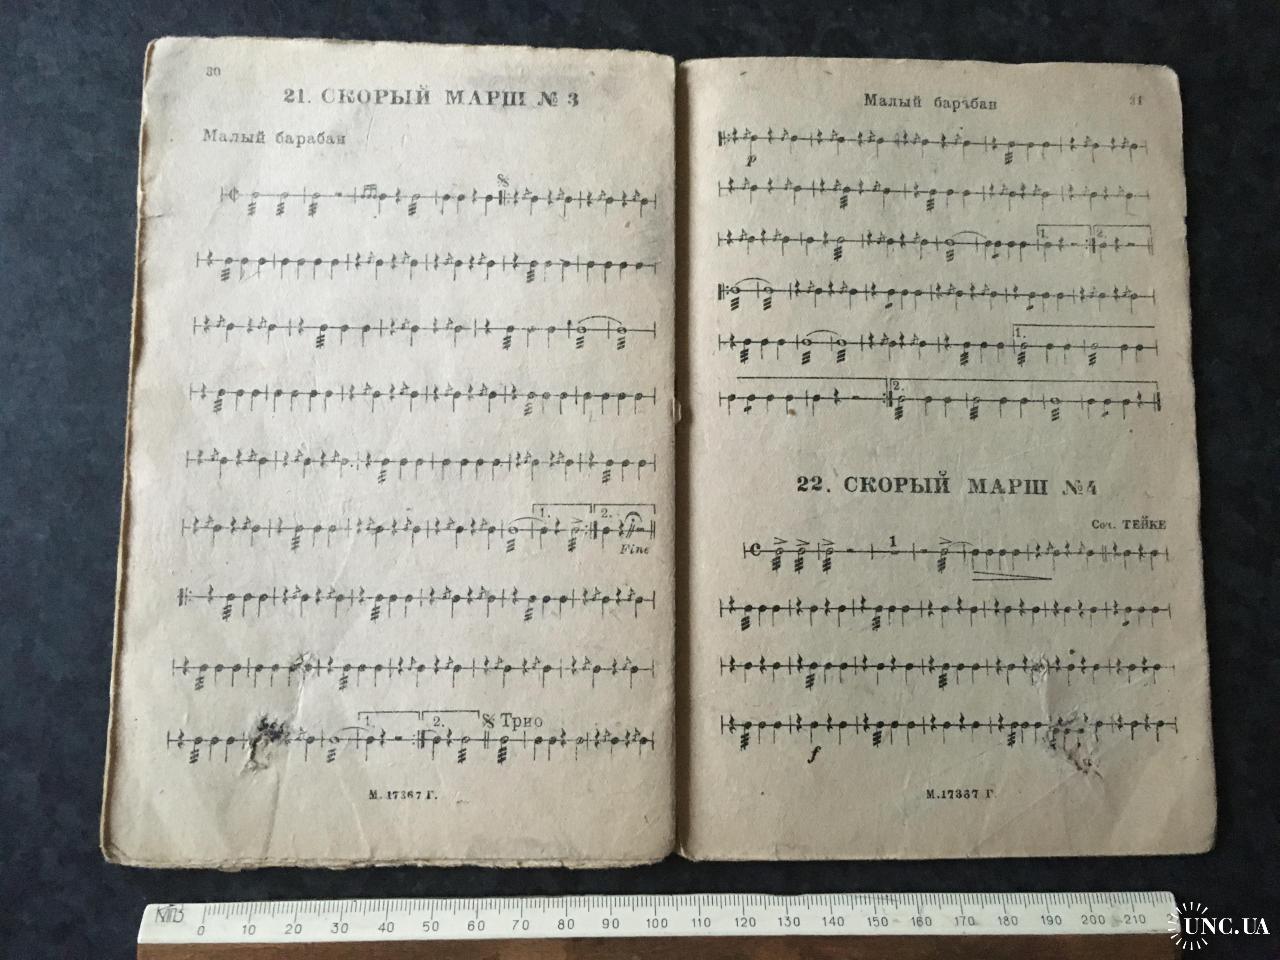 30
21. СКОРЫЙ МАРШ № 3
Малый барабан
1. 2.
Fine
1. 2. Трио
М. 17367 Г.
Малый барабан 31
p
1. 2.
1.
2.
22. СКОРЫЙ МАРШ №4
Соч. ТЕЙКЕ
C 1
f
М. 17367 Г.
0 10 20 30 40 50 60 70 80 90 100 110 120 130 140 150 160 170 180 190 200 210
UNC.UA